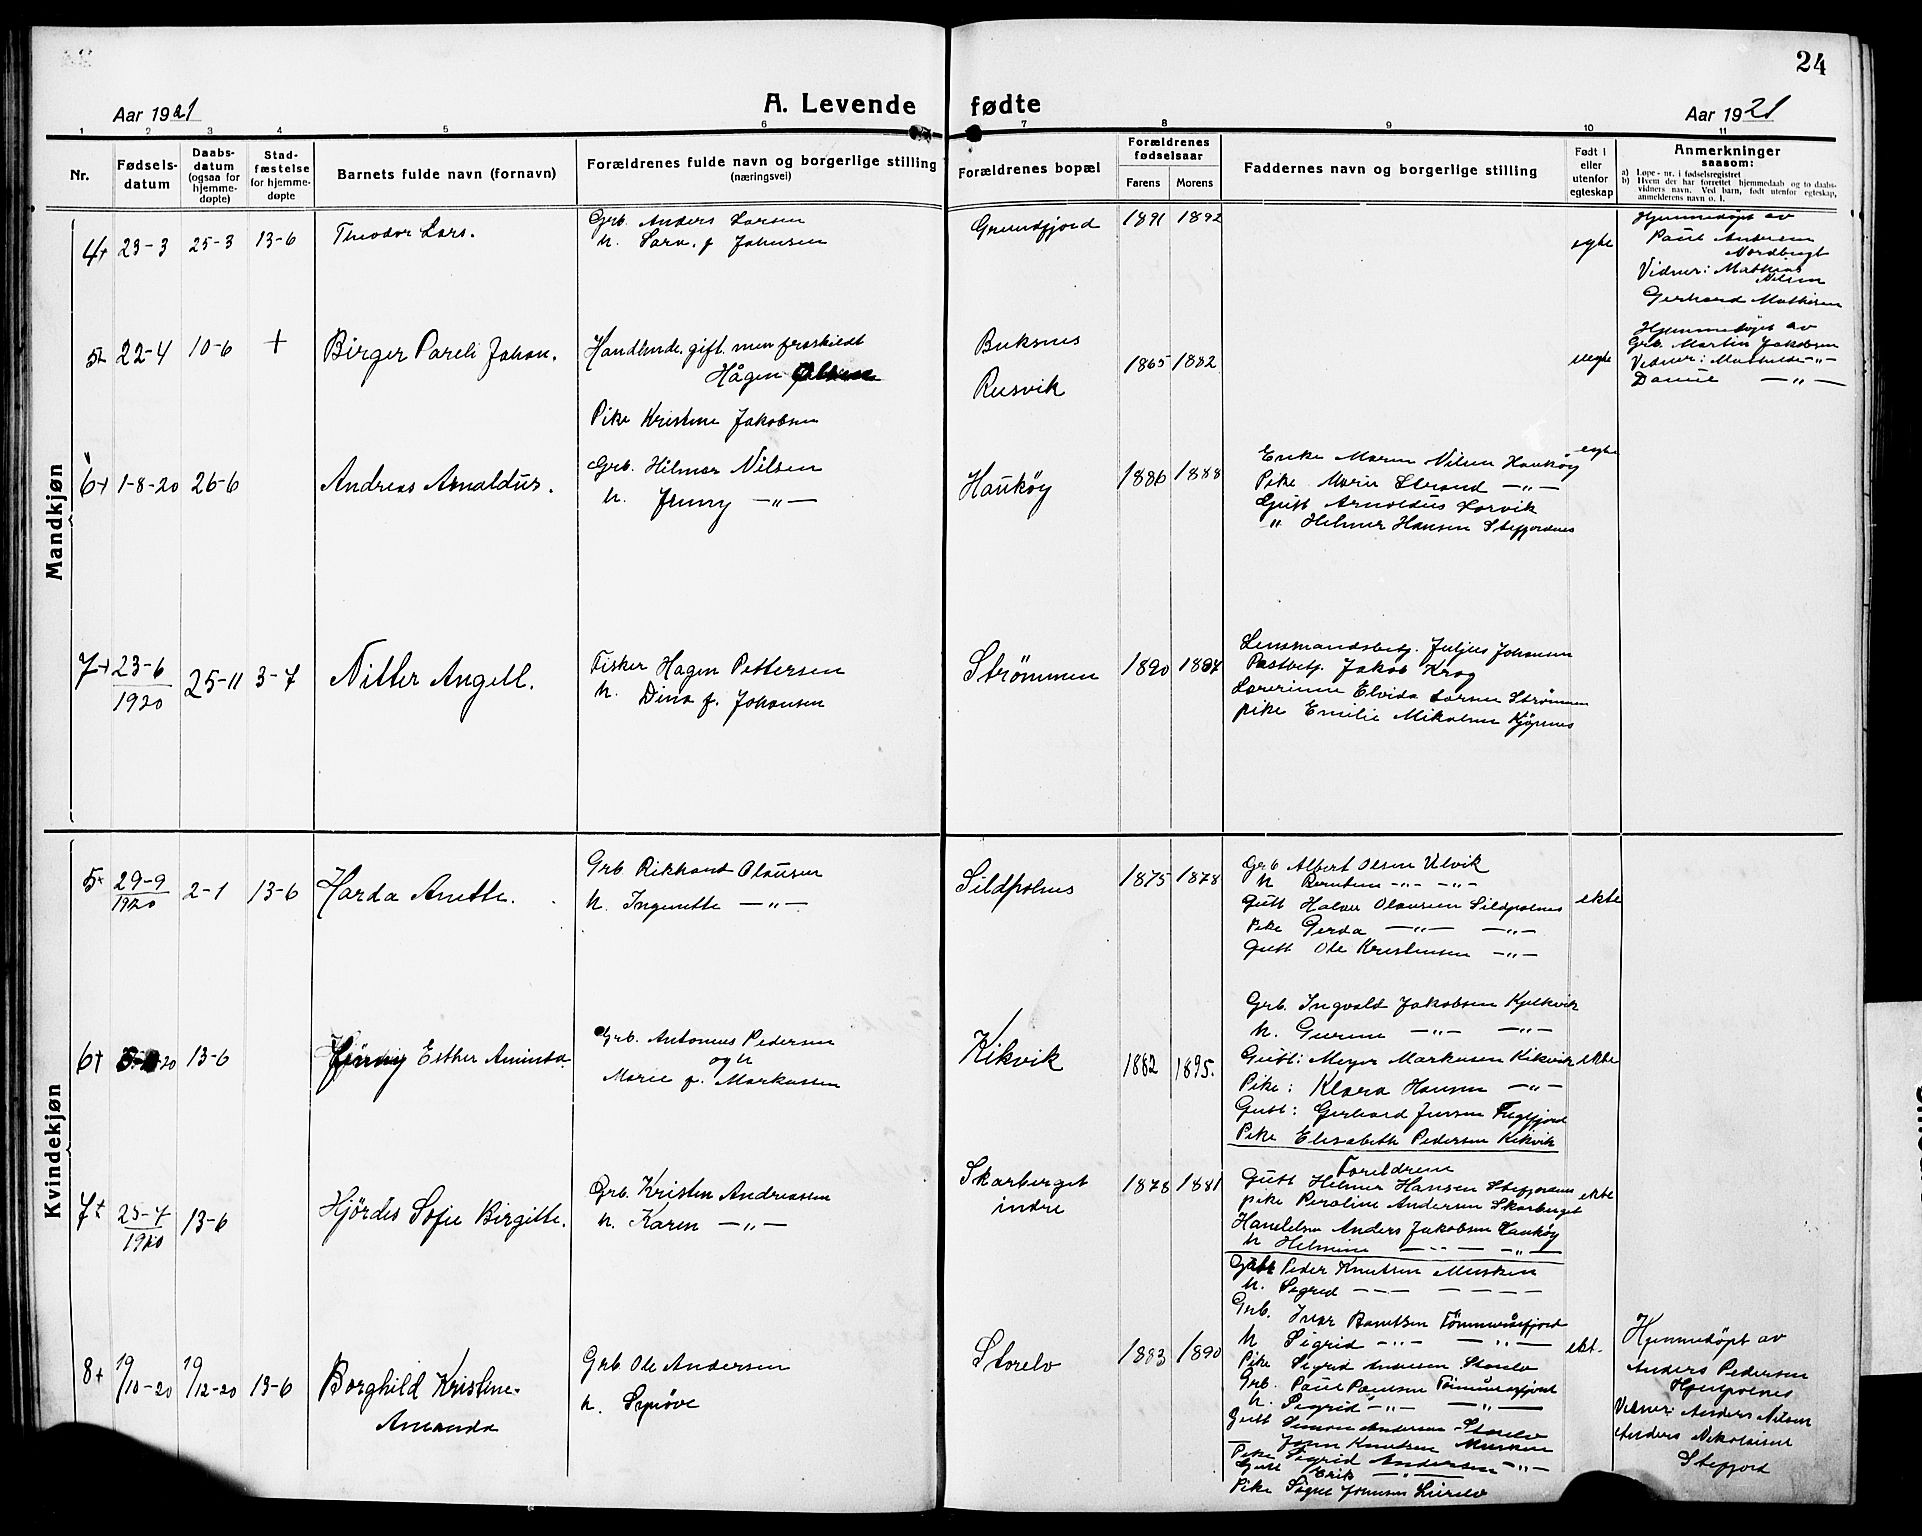 24
Aar 1921
A. Levende fødte
Aar 1921
1 2 3 4 5 6 7 8 9 10 11
Nr.
Fødsels-
datum
Daabs-
datum
(ogsaa for
hjemme-
døpte)
Stad-
fæstelse
for hjemme-
døpte
Barnets fulde navn (fornavn)
Forældrenes fulde navn og borgerlige stilling
(næringsvei)
Forældrenes bopæl
Forældrenes
fødselsaar
Farens Morens
Faddernes navn og borgerlige stilling
Født i
eller
utenfor
egteskap
Anmerkninger
saasom:
a) Løpe-nr. i fødselsregistret
b) Hvem der har forrettet hjemmedaab og to daabs-
vidners navn. Ved barn, født utenfor egteskap,
anmelderens navn o. l.
Mandkjøn
4+ 23-3 25-3 13-6 Theodor Lars.
Grb. Anders Larsen
h. Sara f. Johnsen
Grundfjord 1891 1892
egte
Hjemmedøpt av
Paul Andersen
Nordbugt
Vidner: Mathias
Nilsen
Gerhard Mathisen
5+ 22-4 10-6 + Birger Pareli Johan.
Handlende, gift, men fraskildt
Hågen
Pike Kristine Jakobsen
Buksnes
Rusvik
1865 1882
uegte
Hjemmedøpt av
Grb. Martin Jakobsen
Vidner: Mathilde -"-
Daniel -"-
6+ 1-8-20 26-6 Andreas Arnaldus.
Grb. Hilmar Nilsen
h. Jenny -"-
Haukøy 1886 1888
Enke Maren Nilsen Haukøy
Pike Marie Strand -"-
Gutt Arnoldus Korvik
" Helmer Hansen Stefjordnes
egte
7+ 23-6
1920
25-11 3-7 Nitter Angell.
Fisker Hagen Pettersen
h. Dina f. Johansen
Strømmen 1890 1894
Lensmandsbetj. Julius Johansen
Postbetj. Jakob Krog
Lærerinne Elvida Larsen Strømmen
pike Emilie Mikalsen Kjøpnes
Kvindekjøn
5+ 29-9
1920
2-1 13-6 Harda Anette.
Grb Rikhard Olausen
h. Ingenette -"-
Sildpolnes 1875 1878
Grb Albert Olsen Ulvik
h Berntine -"- -"-
Gutt Halvor Olausen Sildpolnes
Pike Gerda -"- -"-
Gutt Ole Kristensen -"-
ekte
6+ 20 13-6 Jenny Esther Aminda.
Grb. Antonius Pedersen
og h
Marie f. Markussen
Kikvik 1882 1895.
Grb. Ingvald Jakobsen Kjelkvik
h. Gurine -"- -"-
Gutt: Meyer Markusen Kikvik
Pike: Klara Hansen -"-
Gutt: Gerhard Jensen Fuglfjord
Pike Elisabeth Pedersen Kikvik
ekte
7+ 25-4
1920
13-6 Hjørdis Sofie Birgitte.
Grb. Kristen Andreassen
h. Karen -"-
Skarberget
indre
1878 1881
Foreldrene
Gutt Helmer Hansen Stefjordnes
pike Peraline Andersen Skarberget
Handelsm Anders Jakobsen Haukøy
h Helmine -"- -"-
ekte
8+ 19/10-20 19/12-20 13-6 Borghild Kristine
Amanda
Grb Ole Andersen
h. Synøve
Storelv 1883 1890
Gutt Peder Knutsen Musken
h. Sigrid -"- -"-
Grb. Ivar Bentsen Tømmeråsfjord
h Sigrid -"- -"-
Pike Sigrid Andersen Storelv
Grb. Paul Paulsen
h. Sigrid -"- -"-
Gutt Simon Andersen Storelv
John Knutsen Musken
Pike Sigrid Andersen -"-
Gutt Erik -"-
Pike Signe Johnsen
ekt.
Hjemmedøpt av
Anders Pedersen
Hjelpolnes
Vidner: Anders Nilsen
Anders Nikolaisen
Stefjord